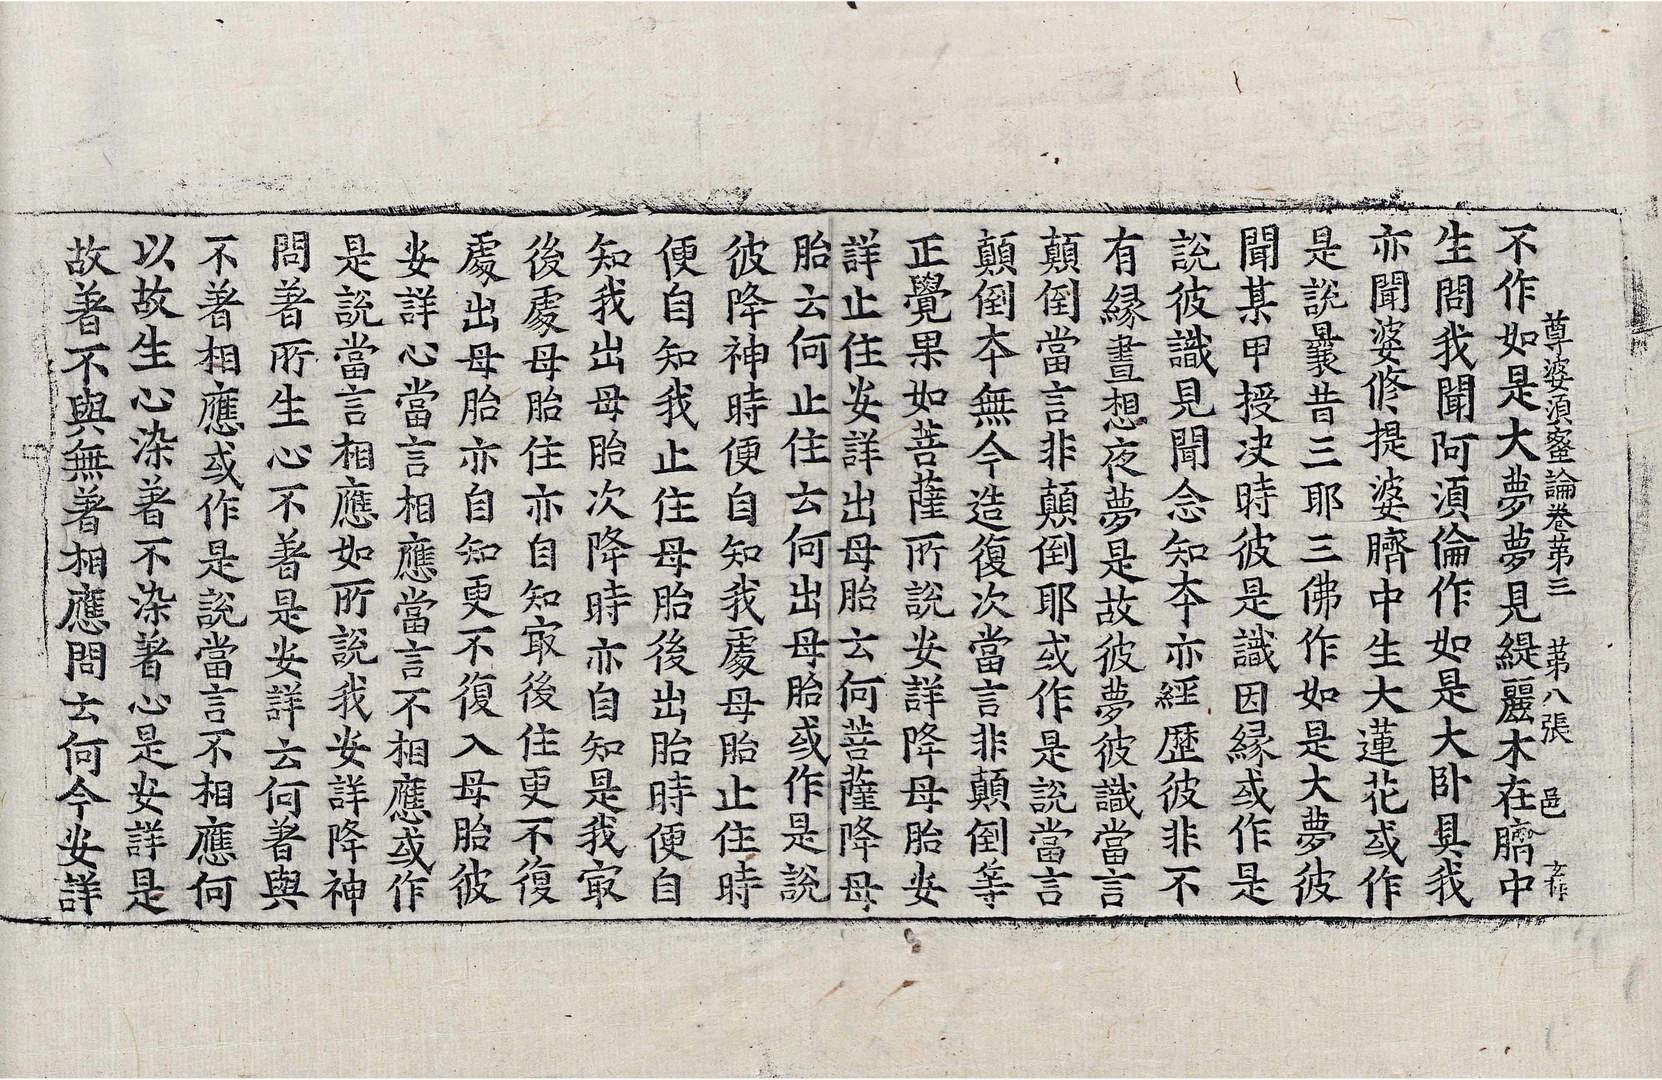 尊婆須蜜論卷苐三 苐八張 邑 玄作
不作如是大夢夢見緹麗木在臍中
生問我聞阿須倫作如是大卧具我
亦聞婆修提婆臍中生大蓮花或作
是說曩昔三耶三佛作如是大夢彼
聞某甲授决時彼是識因縁或作是
說彼識見聞念知夲亦經歷彼非不
有縁晝想夜夢是故彼夢彼識當言
顛倒當言非顛倒耶或作是説當言
顛倒夲無今造復次當言非顛倒等
正覺果如菩薩所說安詳降母胎安
詳止住安詳出母胎云何菩薩降母
胎云何止住云何出母胎或作是說
彼降神時便自知我處母胎止住時
便自知我止住母胎後出胎時便自
知我出母胎次降時亦自知是我㝡
後處母胎住亦自知㝡後住更不復
處出母胎亦自知更不復入母胎彼
安詳心當言相應當言不相應或作
是説當言相應如所説我安詳降神
問著所生心不著是安詳云何著與
不著相應或作是說當言不相應何
以故生心染著不染著心是安詳是
故著不與無著相應問云何今安詳